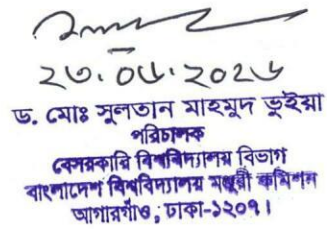 ২৩.০৬.২০২৬
ড. মোঃ সুলতান মাহমুদ ভুইয়া
পরিচালক
বেসরকারি বিশ্ববিদ্যালয় বিভাগ
বাংলাদেশ বিশ্ববিদ্যালয় মঞ্জুরী কমিশন
আগারগাঁও, ঢাকা-১২০৭।